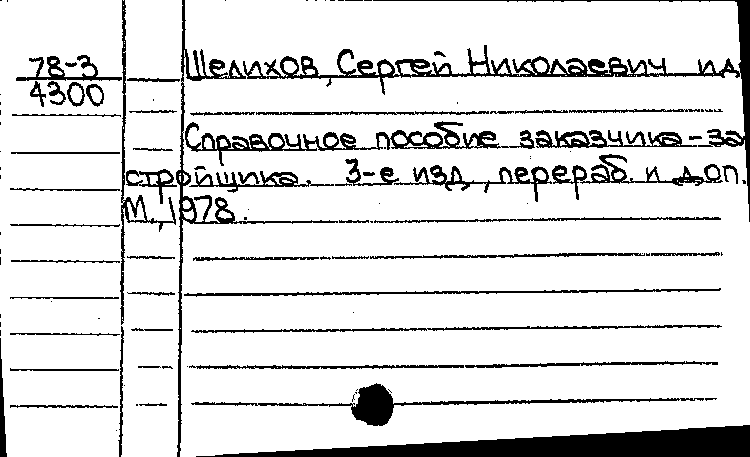 78-3
4300
Шелихов, Сергей Николаевич и д
Справочное пособие заказчика-за
стройщика. 3-е изд., перераб. и доп.
М., 1978.